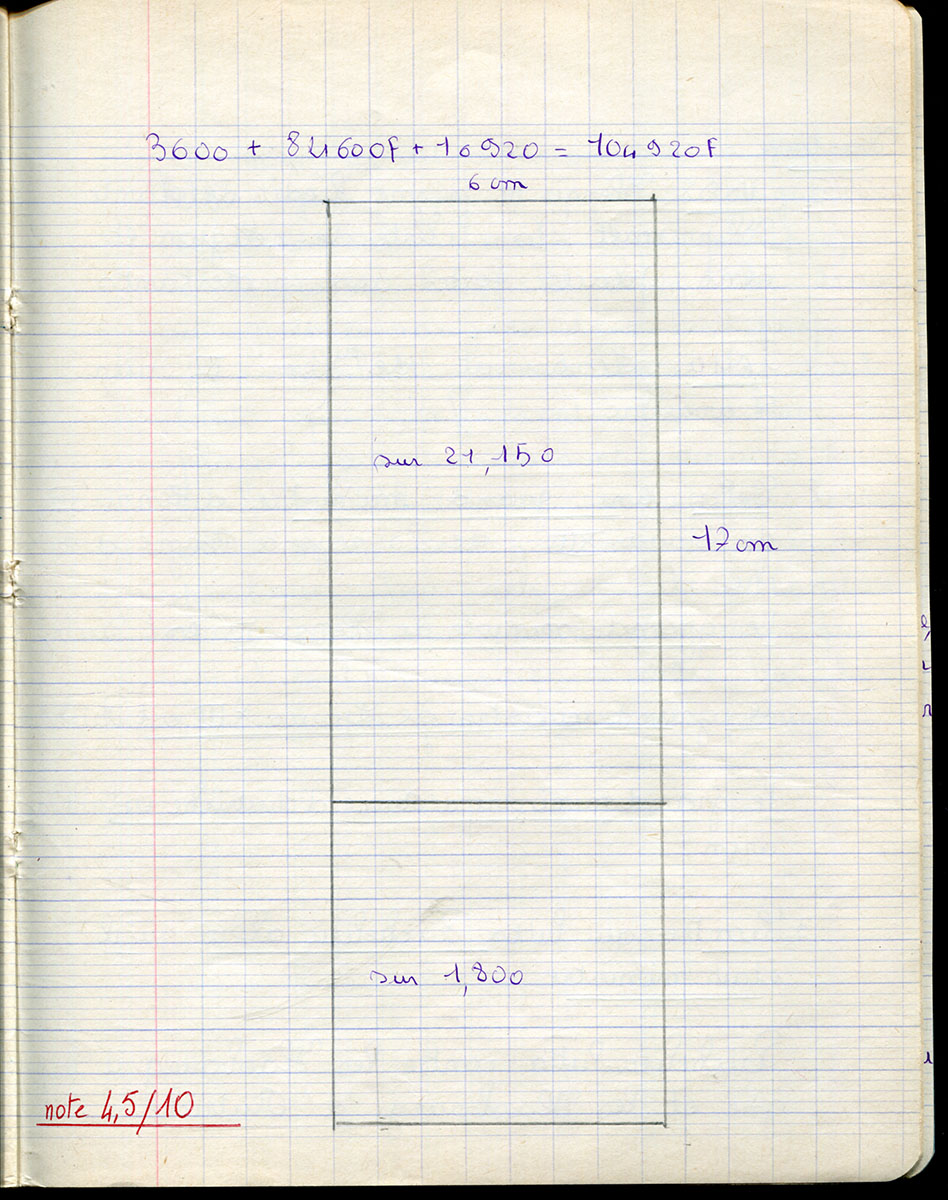 3600 + 84600F + 16920 = 104920F
6 cm
sur 21,150
17 cm
sur 1,800
note 4,5/10